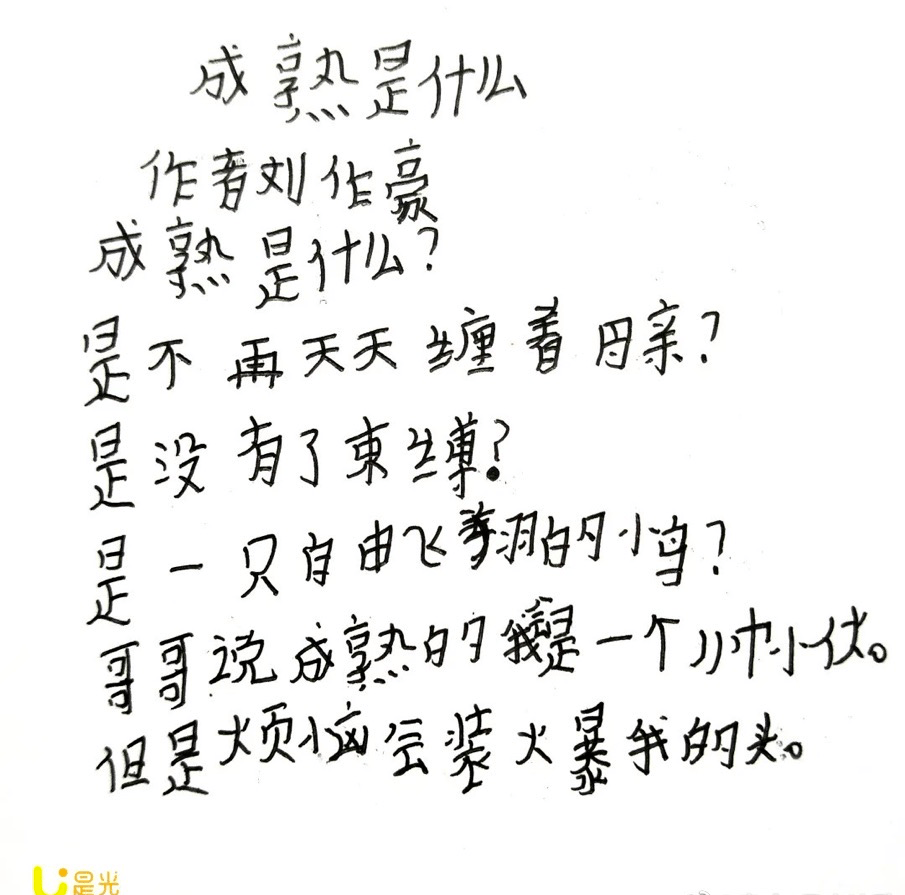 成熟是什么
作者刘作豪
成熟是什么?
是不再天天缠着母亲?
是没有了束缚?
是一只自由飞翔的小鸟?
哥哥说成熟的我是一个小帅小伙。
但是烦恼会装火暴我的头。
是光